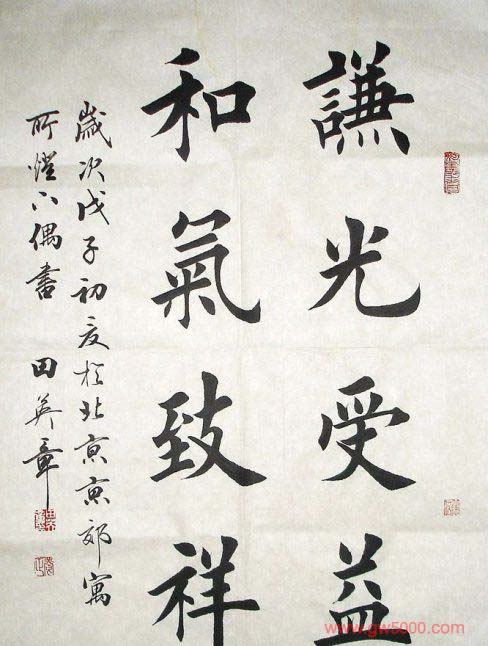 謙光受益
和氣致祥
歲次戊子初夏於北京京郊寓
所燈下偶書 田英章
www.gw5000.com